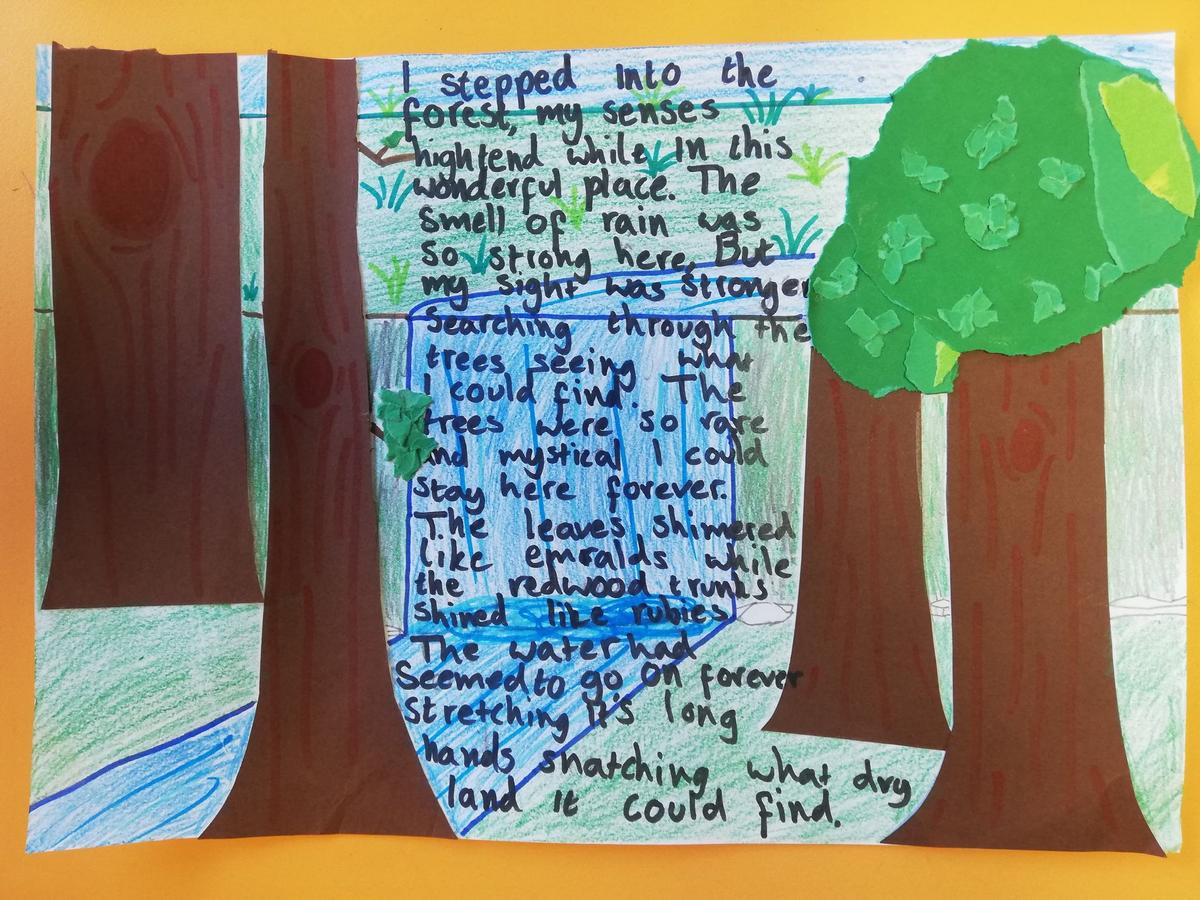 I stepped into the
forest, my senses
hightend while in this
wonderful place. The
smell of rain was
so strong here. But
my sight was stronger
searching through the
trees seeing what
I could find. The
trees were so rare
and mystical I could
stay here forever.
The leaves shimered
like emralds while
the redwood trunks
shined like rubies
The water had
seemed to go on forever
stretching it's long
hands snatching what dry
land it could find.